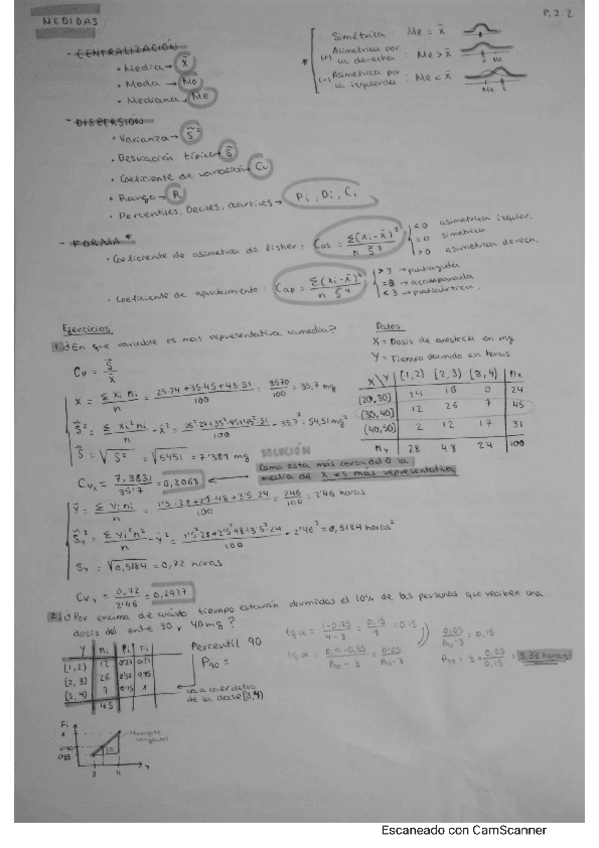 MEDIDAS:
P.2.2
- CENTRALIZACIÓN
• Media → x̄
• Moda → Mo
• Mediana → Me
* Simétrica : Me = x̄
(+) Asimétrica por la derecha : Me > x̄
(-) Asimetrica por la izquierda : Me < x̄
Me x̄
- DISPERSIÓN
• Varianza → S²
• Desviación típica → S
• Coeficiente de variación → Cv
• Rango → R
• Percentiles, Deciles, cuartiles → Pi, Di, Ci
- FORMA *
• Coeficiente de asimetria de fisher : Cas = Σ(xi-x̄)³ / n S³
< 0 asimétrica izquier.
= 0 simétrica
> 0 asimétrica derech.
• Coeficiente de apuntamiento : Cap = Σ(xi-x̄)⁴ / n S⁴
> 3 → puntiaguda
= 3 → acampanada
< 3 →
Ejercicios
1. ¿En que variable es más representativa la media?
Datos
X = Dosis de anestesia en mg
Y = Tiempo dormido en horas
X\Y [1,2) [2,3) [3,4) nx
[20,30) 14 10 0 24
[30,40) 12 26 7 45
[40,50) 2 12 17 31
ny 28 48 24 100
Cv = S / x̄
x̄ = Σ xi ni / n = 25·24+35·45+45·31 / 100 = 3570 / 100 = 35,7 mg
S² = Σ xi² ni / n - x̄² = 25²·24+35²·45+45²·31 / 100 - 35,7² = 54,51 mg²
S = √S² = √54,51 = 7'3831 mg
SOLUCIÓN
Cvx = 7,3831 / 35'7 = 0,2068
Como esta más cerca del 0 la media de X es más representativa
Ȳ = Σ Yi ni / n = 1'5·28+2'5·48+3'5·24 / 100 = 246 / 100 = 2'46 horas
Sy² = Σ Yi² ni / n - ȳ² = 1'5²·28+2'5²·48+3'5²·24 / 100 - 2'46² = 0,5184 horas²
Sy = √0,5184 = 0,72 horas
Cvy = 0,72 / 2'46 = 0,2927
2. ¿Por encima de cuánto tiempo estarán dormidas el 10% de las personas que reciben una
dosis del entre 30 y 40 mg?
Y ni
[1,2) 12
[2,3) 26
[3,4) 7 0'15 1
45
Percentil 90
P90 =
de su clase [3,4)
tg α = 1-0.85 / 4-3 = 0.15 / 1 = 0.15
tg α = 0.9-0.85 / P90-3 = 0.05 / P90-3
0.05 / P90-3 = 0.15
P90 = 3 + 0.05 / 0.15 = 3.33 horas
Fi
1
0.90
0.85
3 4 Y
Escaneado con CamScanner